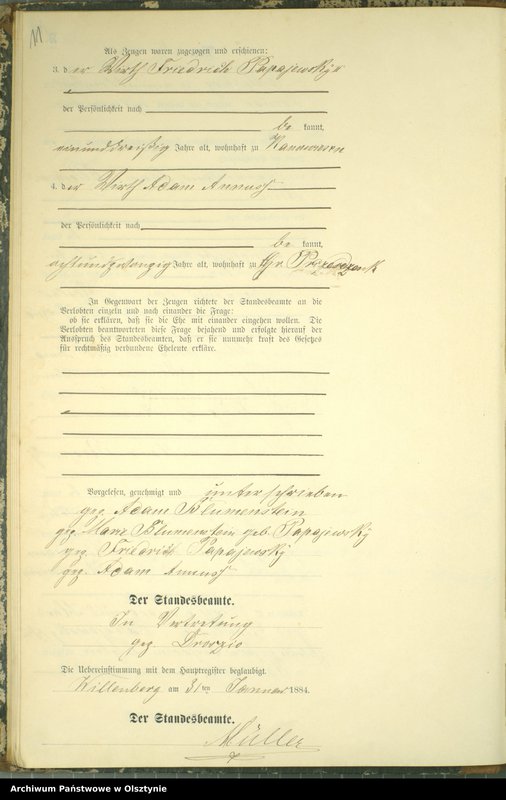 11
Als Zeugen waren zugezogen und erschienen:
3. der Wirth Friedrich Papajewsky
der Persönlichkeit nach
be kannt,
einunddreißig Jahre alt, wohnhaft zu
4. der Wirth Adam Annuss
der Persönlichkeit nach
be kannt,
achtundzwanzig Jahre alt, wohnhaft zu Gr.
In Gegenwart der Zeugen richtete der Standesbeamte an die
Verlobten einzeln und nach einander die Frage:
ob sie erklären, daß sie die Ehe mit einander eingehen wollen. Die
Verlobten beantworteten diese Frage bejahend und erfolgte hierauf der
Ausspruch des Standesbeamten, daß er sie nunmehr kraft des Gesetzes
für rechtmäßig verbundene Eheleute erkläre.
Vorgelesen, genehmigt und unterschrieben
gez. Adam Blumenstein
gez. Marie Blumenstein geb. Papajewsky
gez. Friedrich Papajewsky
gez. Adam Annuss
Der Standesbeamte.
In Vertretung
gez.
Die Uebereinstimmung mit dem Hauptregister beglaubigt.
Willenberg am 31ten Januar 1884.
Der Standesbeamte.
Müller
Archiwum Państwowe w Olsztynie